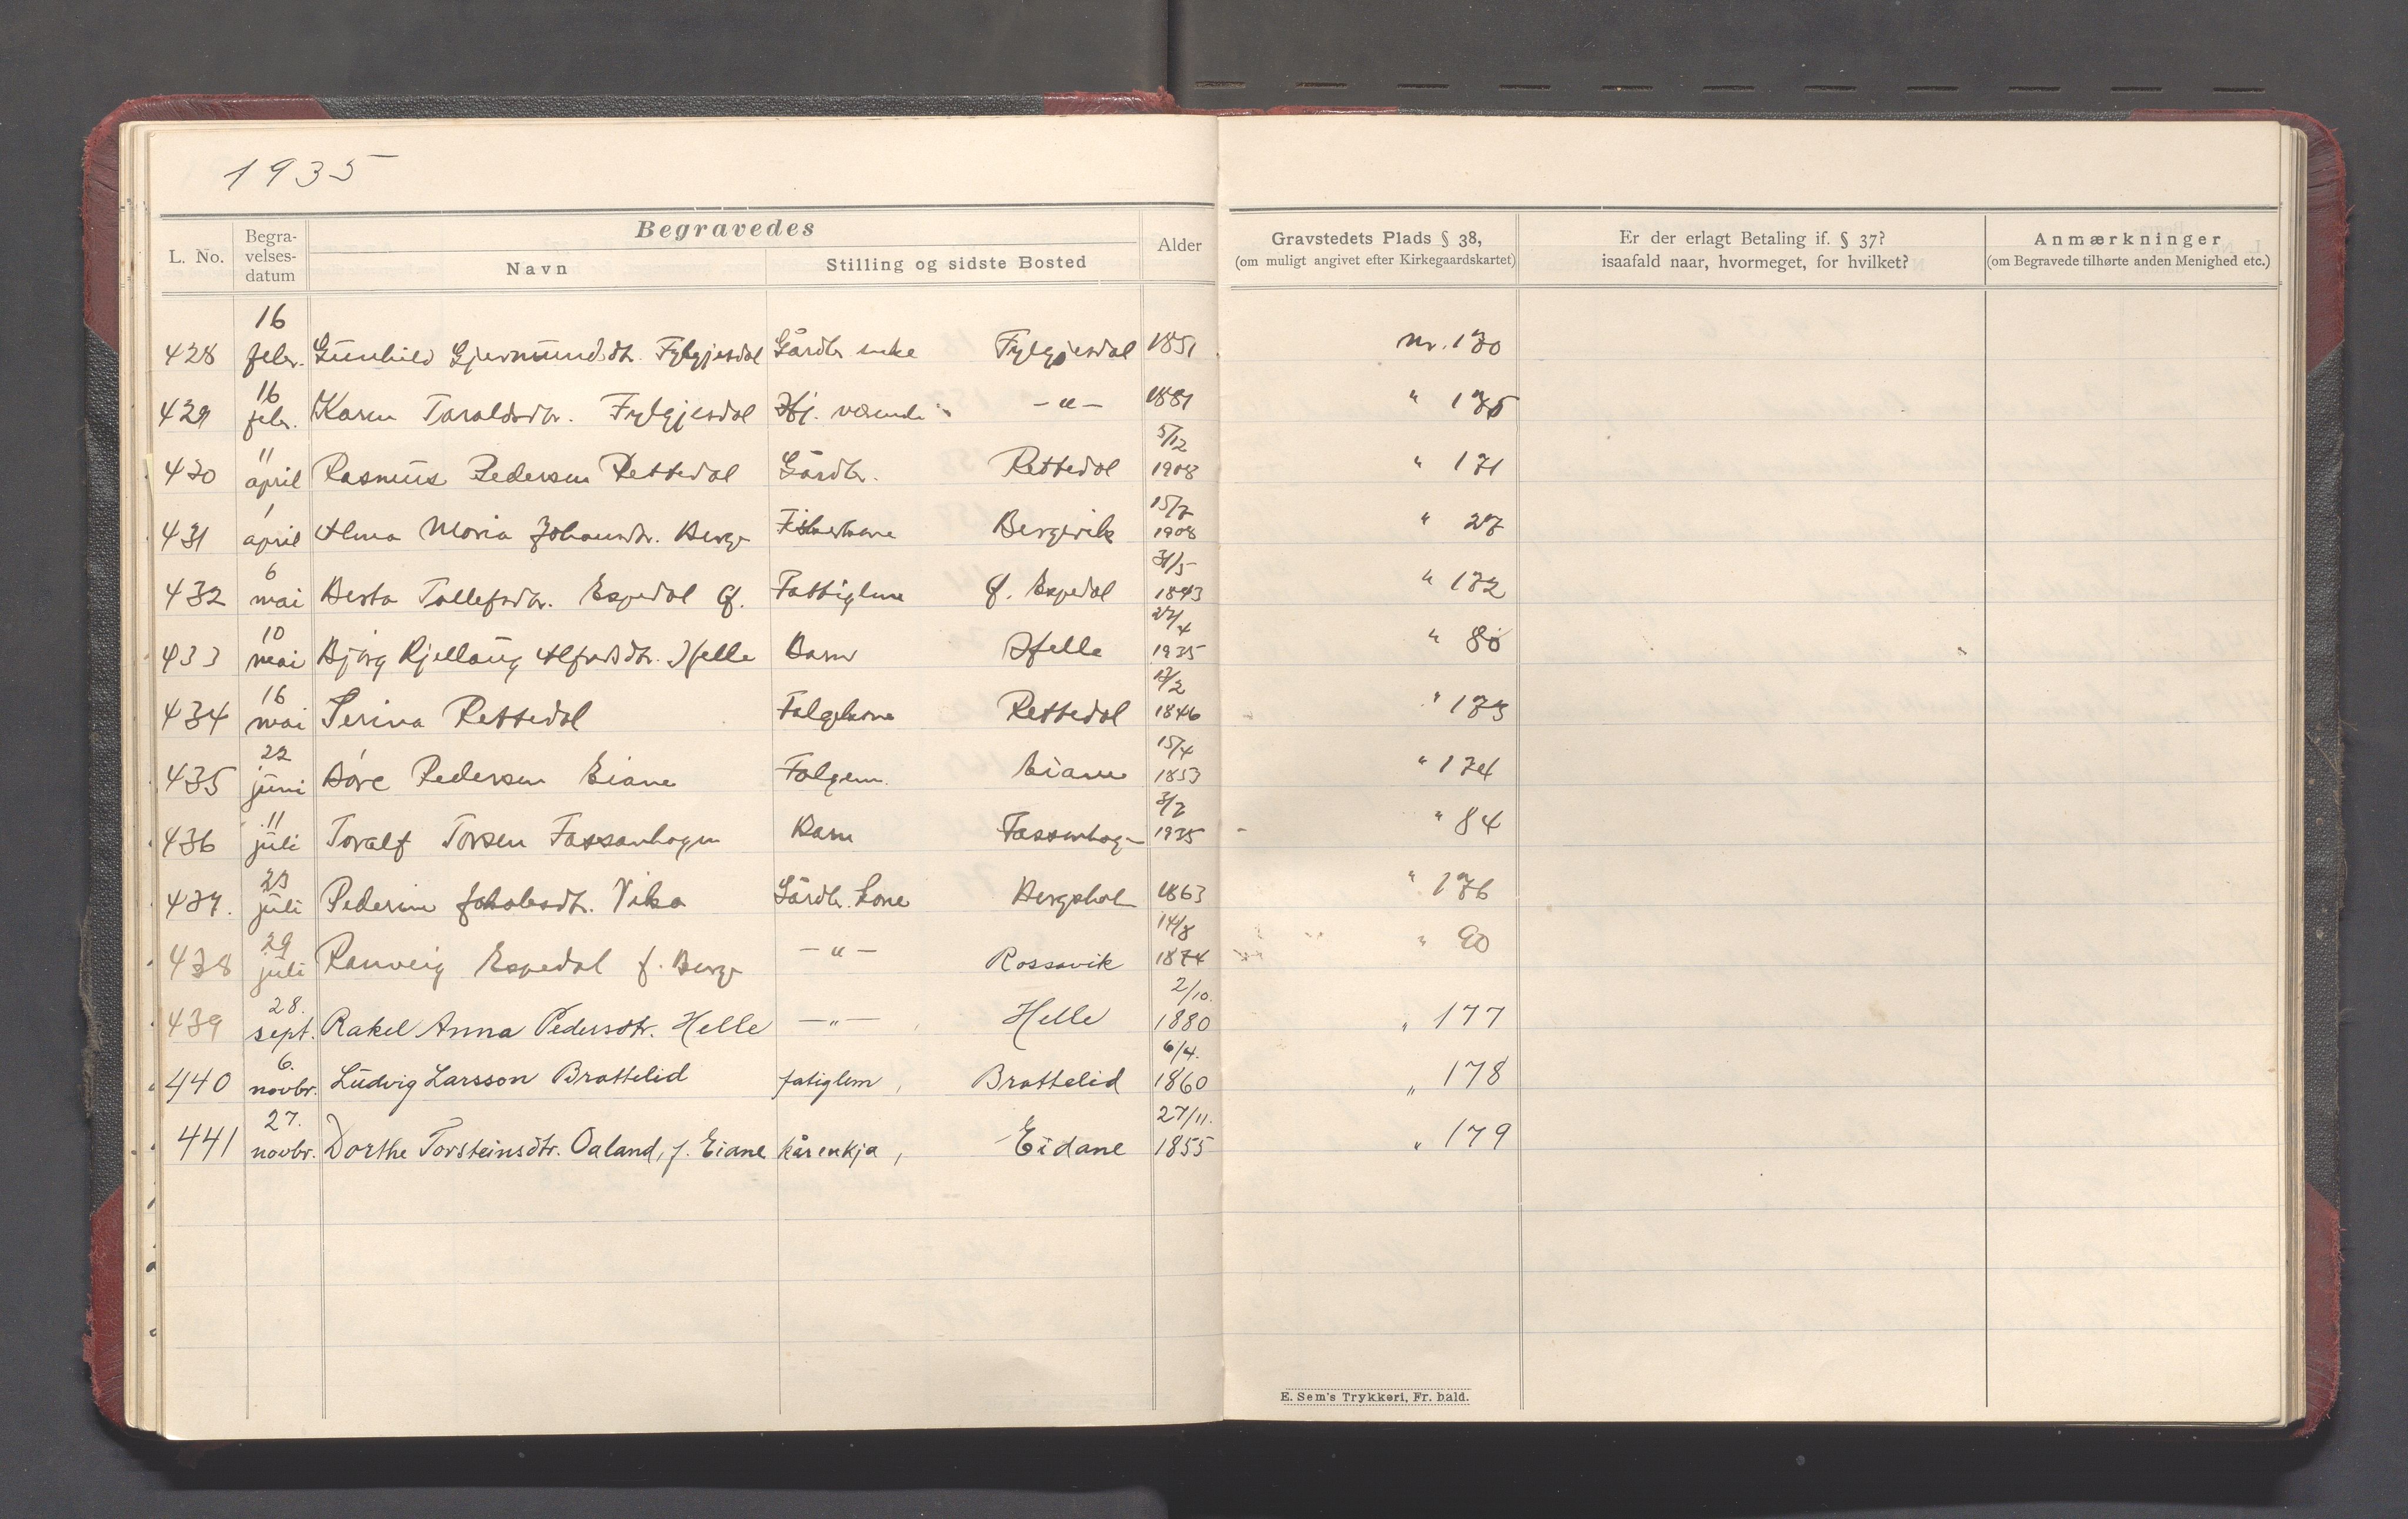 1935
Begravedes
L. No. Begra-velses-datum Navn Stilling og sidste Bosted Alder Gravstedets Plads § 38, (om muligt angivet efter Kirkegaardskartet) Er der erlagt Betaling if. § 37? isaafald naar, hvormeget, for hvilket? Anmærkninger (om Begravede tilhørte anden Menighed etc.)
428 16 febr. Gunhild Gjermundsdtr. Fylgjesdal Gårdbr enke Fylgjesdal 1851 nr. 170
429 16 febr. Karen Taraldsdtr. Fylgjesdal Hj. værende -"- 1881 " 175
430 11 april Rasmus Pedersen Rettedal Gårdbr. Rettedal 5/12 1908 " 171
431 1 april Alma Maria Johannsdtr. Berge Fiskerkone Bergevik 15/7 1908 " 27
432 6 mai Berta Tollefsdtr. Espedal Ø. Fattiglem Ø. Espedal 31/5 1843 " 172
433 10 mai Bjørg Kjellaug Alfredsdtr. Helle Barn Helle 27/4 1935 " 80
434 16 mai Serina Rettedal Folgekone Rettedal 17/2 1846 " 173
435 22 juni Børe Pedersen Eiane Folgem. Eiane 15/4 1853 " 174
436 11 juli Toralf Torsen Fossanhagen Barn Fossanhag 3/7 1935 " 84
437. 23 juli Pederine Jakobsdtr. Vika Gårdbr. kone Bergshol 1863 " 176
438 29 juli Ranveig Espedal f. Berge -"- Rossavik 14/8 1874 " 90
439 28. sept. Rakel Anna Pedersdtr. Helle -"- , Helle 2/10. 1880 " 177
440 6. novbr. Ludvig Larsson Brattelid fatiglem , Brattelid 6/4. 1860 " 178
441 27. novbr. Dorthe Torsteinsdtr. Oaland, f. Eiane kårenkja , Eidane 27/11. 1855 " 179
E. Sem's Trykkeri, Fr. hald.